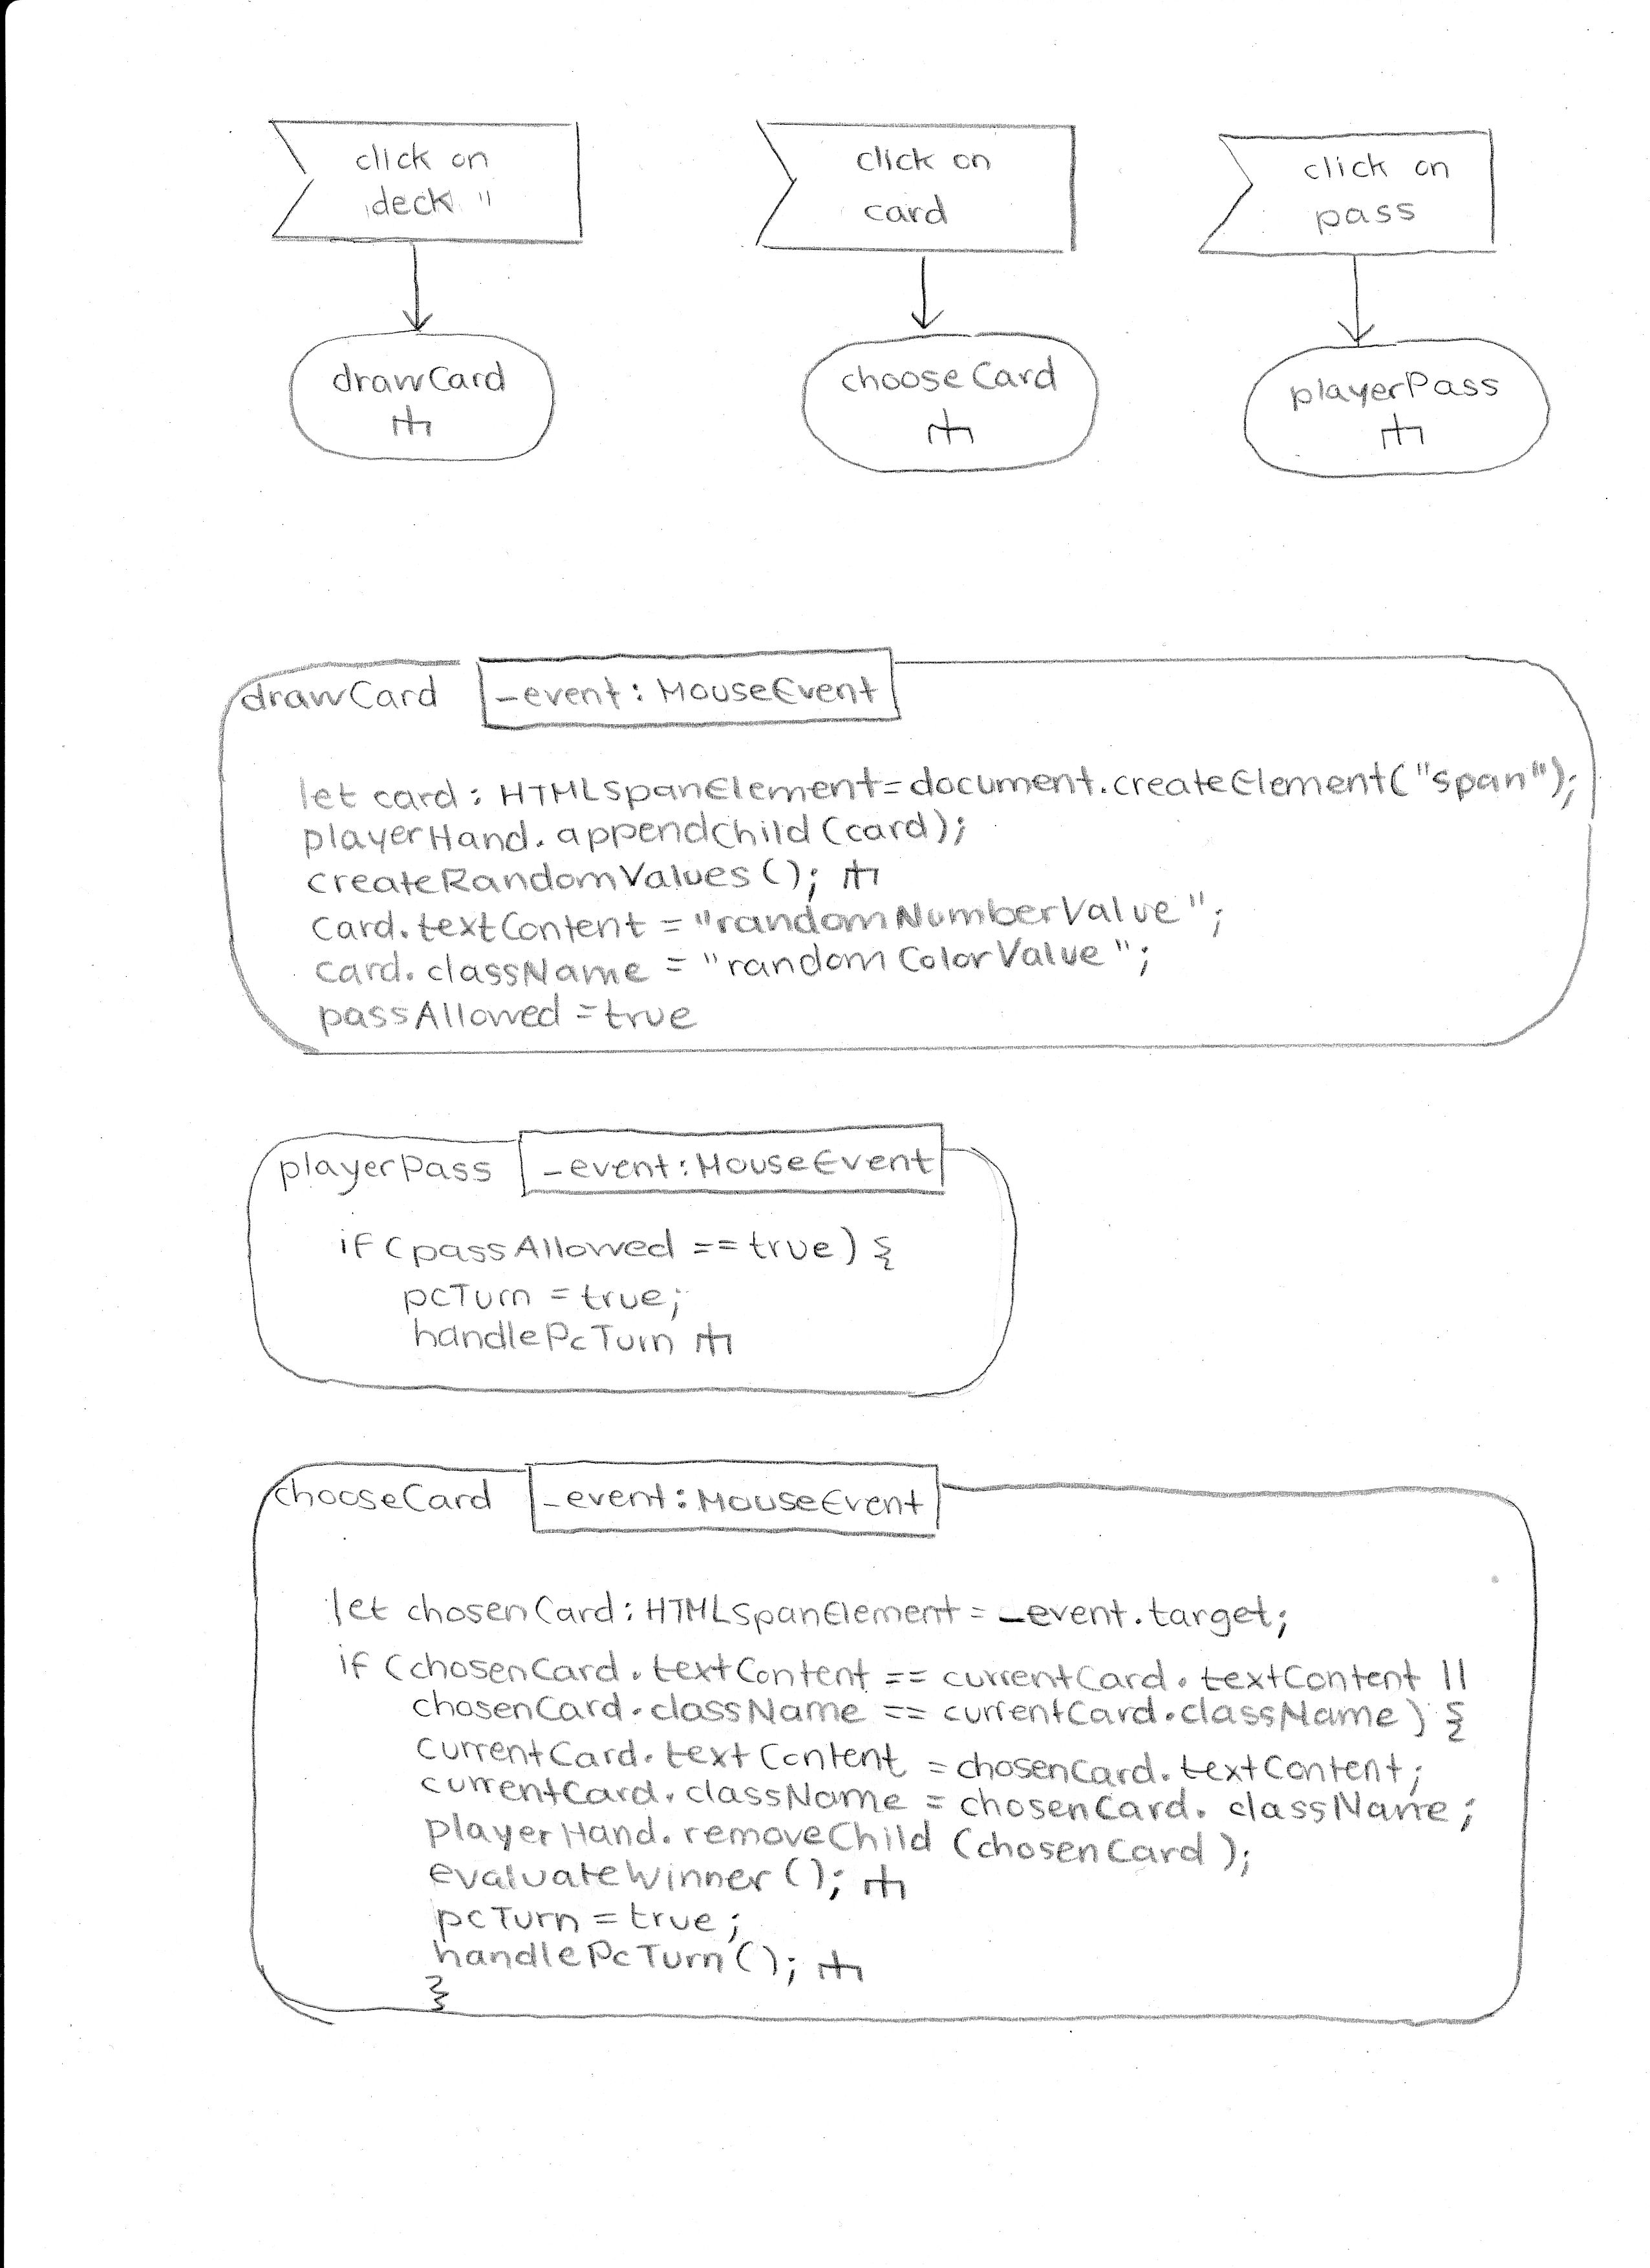 click on
deck "
click on
card
click on
pass
drawCard
chooseCard
playerPass
drawCard _event: MouseEvent
let card: HTMLSpanElement=document.createElement("span");
playerHand.appendChild(card);
createRandomValues();
card.textContent = "randomNumberValue";
card.className = "randomColorValue";
passAllowed = true
playerPass _event: MouseEvent
if (passAllowed == true) {
pcTurn = true;
handlePcTurn
chooseCard _event: MouseEvent
let chosenCard: HTMLSpanElement = _event.target;
if (chosenCard.textContent == currentCard.textContent ||
chosenCard.className == currentCard.className) {
currentCard.textContent = chosenCard.textContent;
currentCard.className = chosenCard.className;
playerHand.removeChild (chosenCard);
evaluateWinner();
pcTurn = true;
handlePcTurn();
}